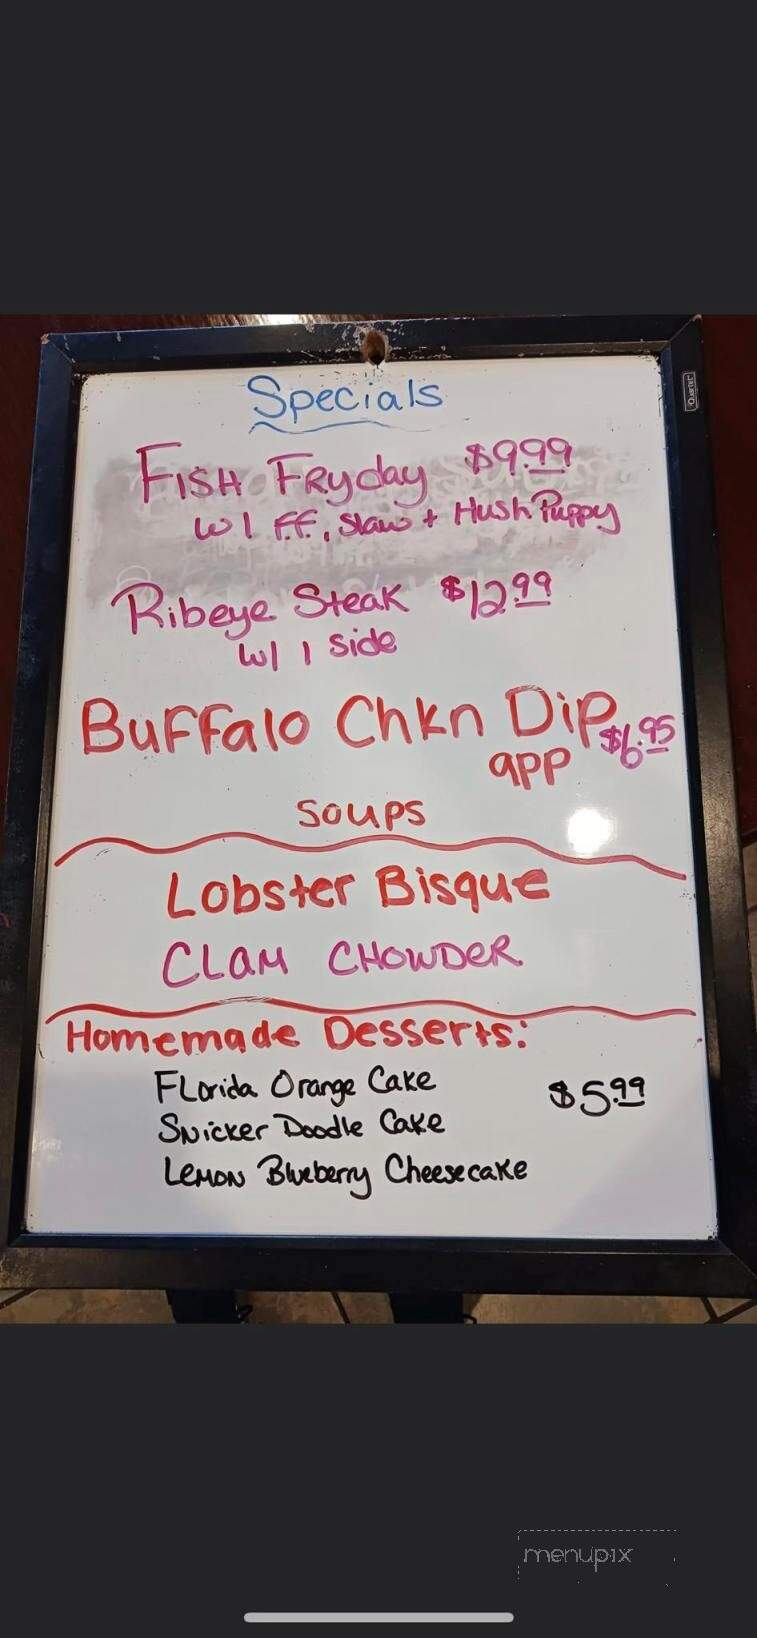 Specials
Quartet
FISH FRyday $9.99
w/ F.F., Slaw + Hush Puppy
Ribeye Steak $12.99
w/ 1 side
Buffalo Chkn Dip $6.95
app
SOUPS
Lobster Bisque
CLAM CHOWDER
Homemade Desserts:
FLorida Orange Cake $5.99
Snicker Doodle Cake
LEMON Blueberry Cheesecake
menupix